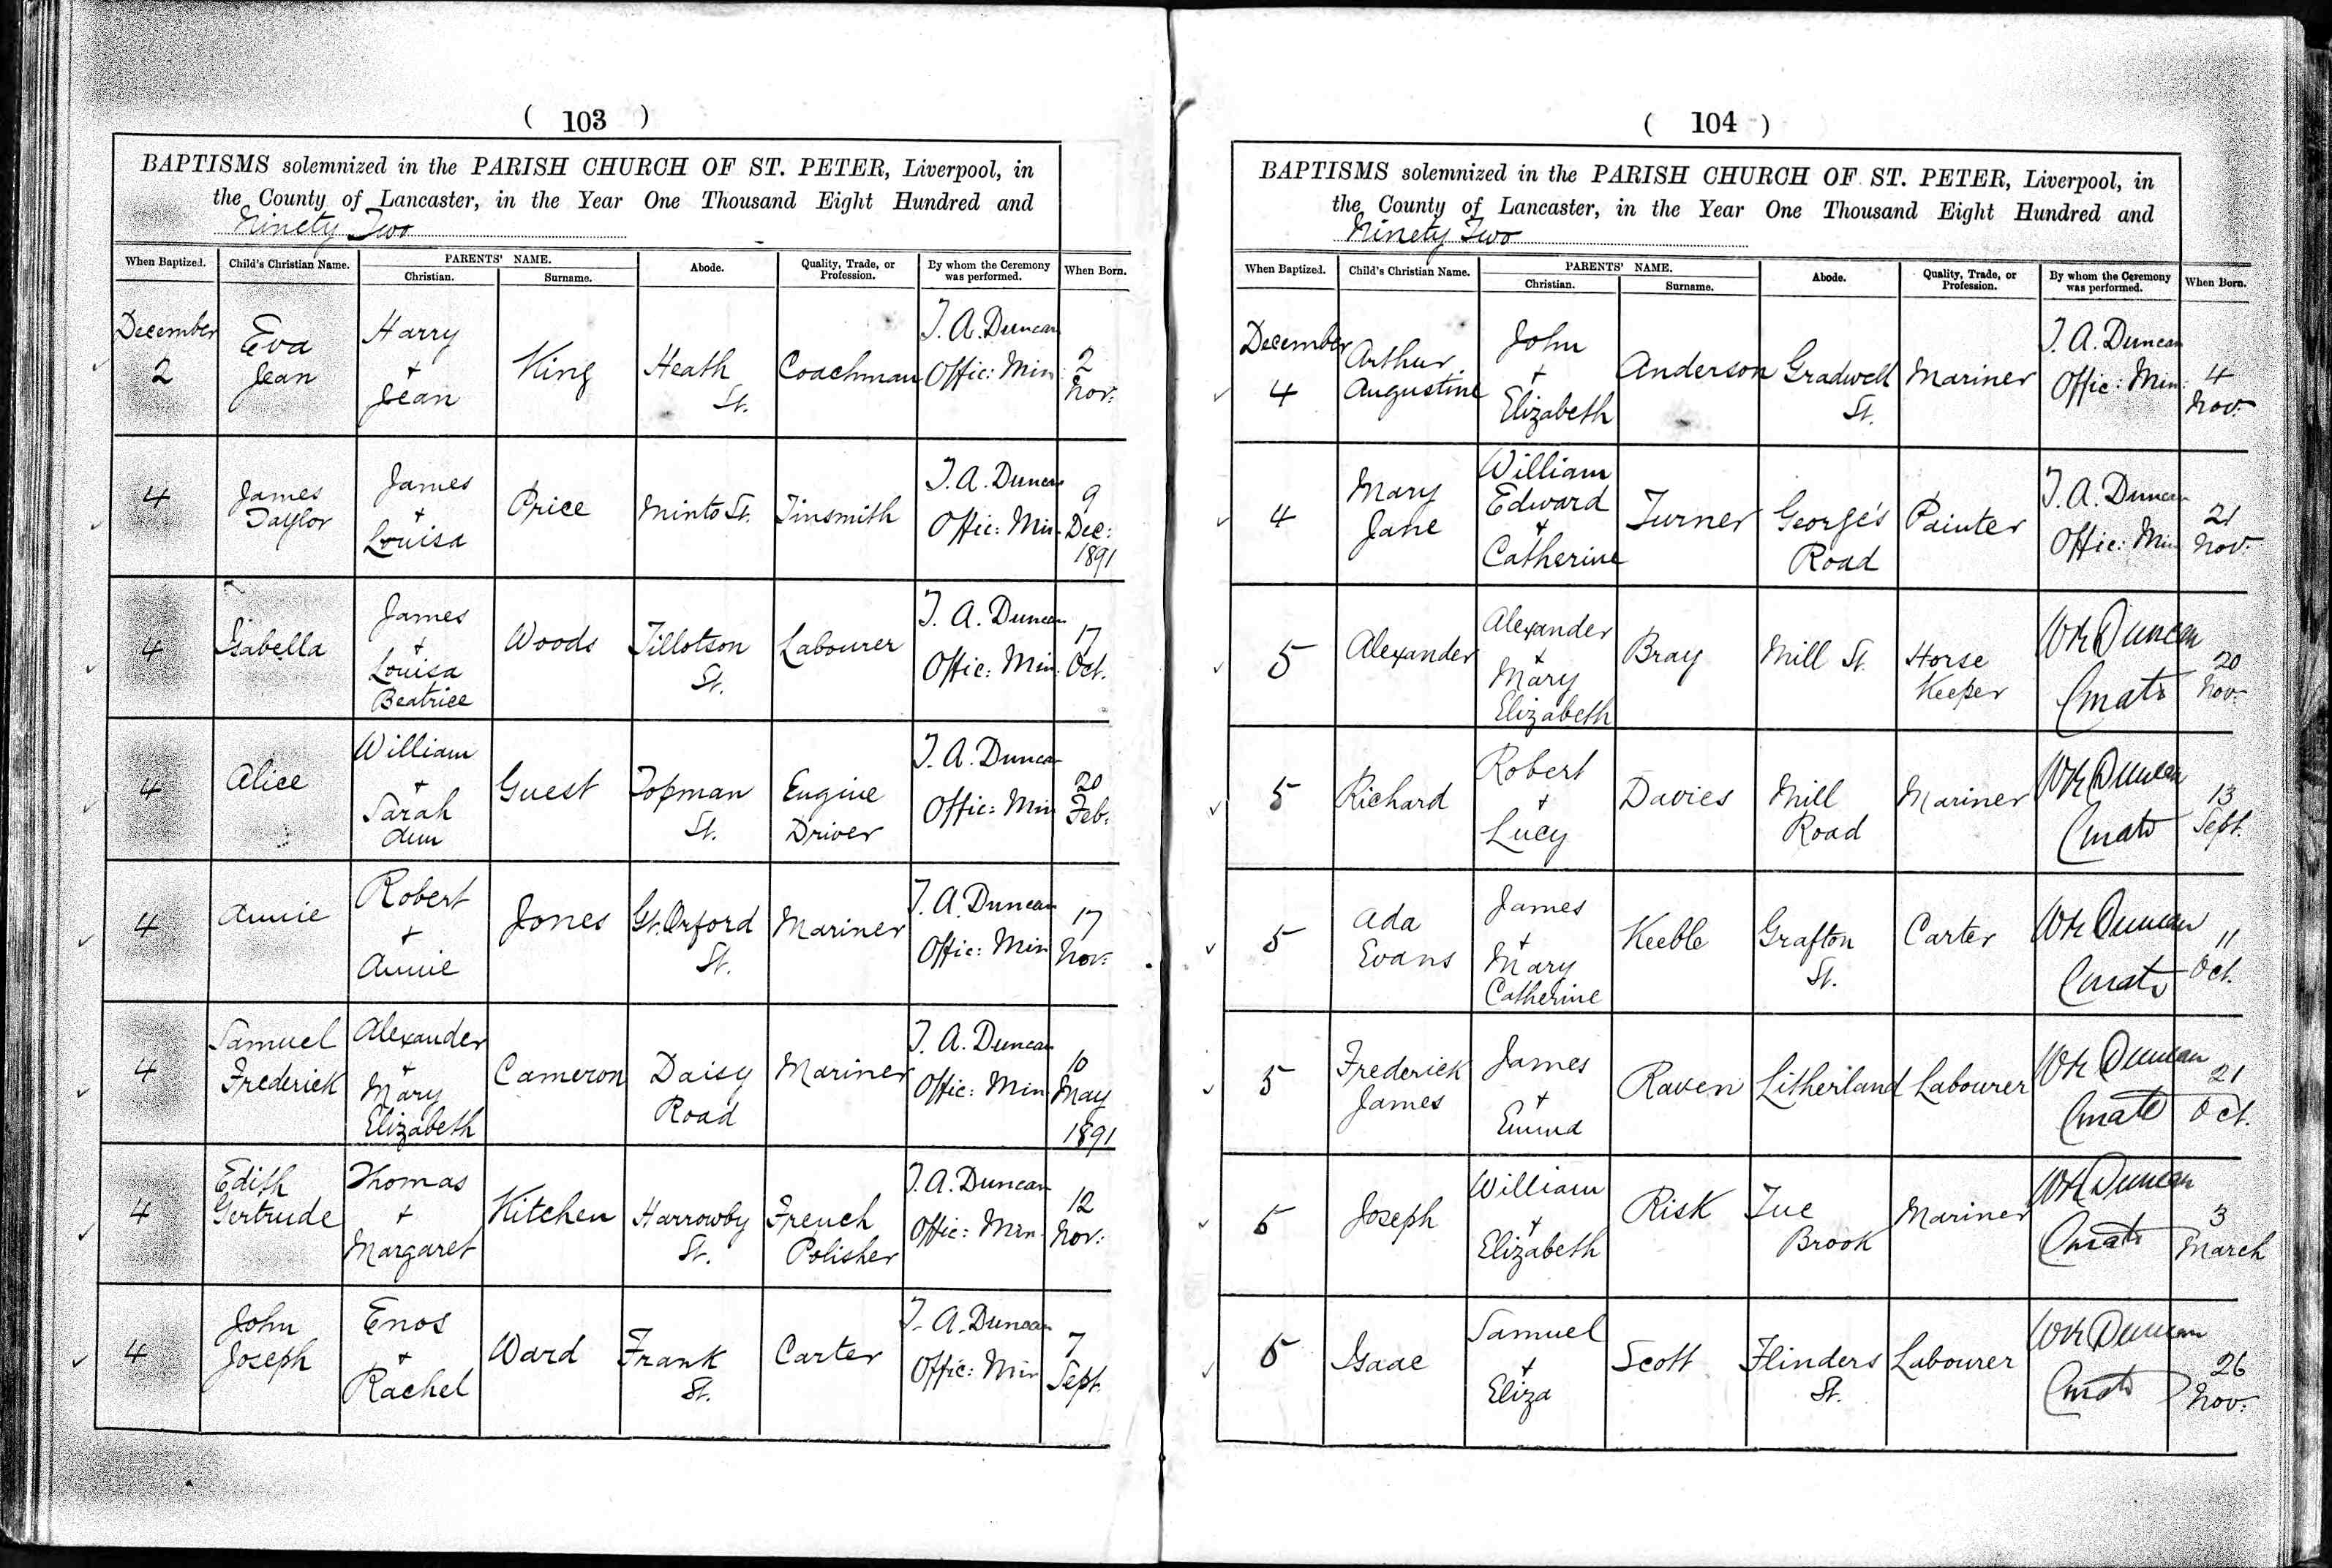 ( 103 )
BAPTISMS solemnized in the PARISH CHURCH OF ST. PETER, Liverpool, in
the County of Lancaster, in the Year One Thousand Eight Hundred and
Ninety Two
When Baptized. Child's Christian Name. PARENTS' NAME. Christian. Surname. Abode. Quality, Trade, or Profession. By whom the Ceremony was performed. When Born.
December 2 Eva Jean Harry + Jean King Heath St. Coachman T. A. Duncan Offic: Min: 2 Nov:
4 James Taylor James + Louisa Price Minto St. Tinsmith T. A. Duncan Offic: Min. 9 Dec: 1891
4 Isabella James + Louisa Beatrice Woods Tillotson St. Labourer T. A. Duncan Offic: Min: 17 Oct.
4 Alice William + Sarah Ann Guest Topman St. Engine Driver T. A. Duncan Offic: Min 20 Feb:
4 Annie Robert + Annie Jones Gt. Orford St. Mariner T. A. Duncan Offic: Min 17 Nov:
4 Samuel Frederick Alexander + Mary Elizabeth Cameron Daisy Road Mariner T. A. Duncan Offic: Min 10 May 1891
4 Edith Gertrude Thomas + Margaret Kitchen Harrowby St. French Polisher T. A. Duncan Offic: Min. 12 Nov:
4 John Joseph Enos + Rachel Ward Frank St. Carter T. A. Duncan Offic: Min 7 Sept.
( 104 )
BAPTISMS solemnized in the PARISH CHURCH OF ST. PETER, Liverpool, in
the County of Lancaster, in the Year One Thousand Eight Hundred and
Ninety Two
When Baptized. Child's Christian Name. PARENTS' NAME. Christian. Surname. Abode. Quality, Trade, or Profession. By whom the Ceremony was performed. When Born.
December 4 Arthur Augustine John + Elizabeth Anderson Gradwell St. Mariner T. A. Duncan Offic: Min: 4 Nov:
4 Mary Jane William Edward + Catherine Turner George's Road Painter T. A. Duncan Offic: Min 21 Nov:
5 Alexander Alexander + Mary Elizabeth Bray Mill St. Horse Keeper Duncan Curate 20 Nov:
5 Richard Robert + Lucy Davies Mill Road Mariner Duncan Curate 13 Sept.
5 Ada Evans James + Mary Catherine Keeble Grafton St. Carter Duncan Curate 11 Oct.
5 Frederick James James + Emma Raven Litherland Labourer Duncan Curate 21 Oct.
5 Joseph William + Elizabeth Risk Tue Brook Mariner Duncan Curate 3 March
5 Isaac Samuel + Eliza Scott Flinders St. Labourer Duncan Curate 26 Nov: